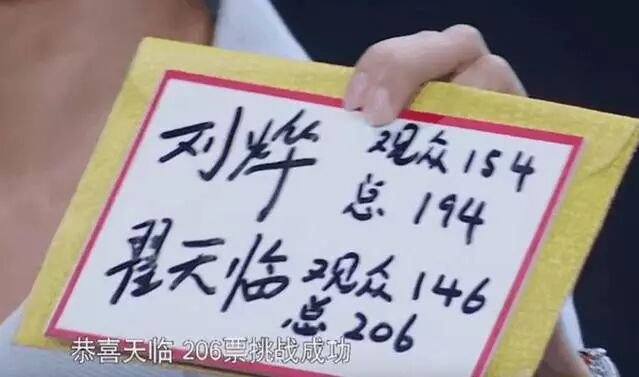 刘烨 观众154
总194
翟天临 观众146
总206
恭喜天临 206票挑战成功